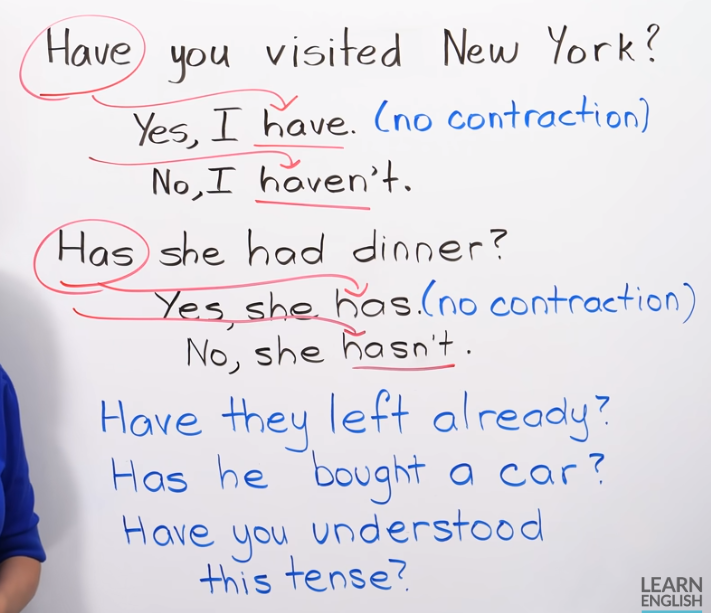 Have you visited New York?
Yes, I have. (no contraction)
No, I haven't.
Has she had dinner?
Yes, she has. (no contraction)
No, she hasn't.
Have they left already?
Has he bought a car?
Have you understood
this tense?
LEARN
ENGLISH